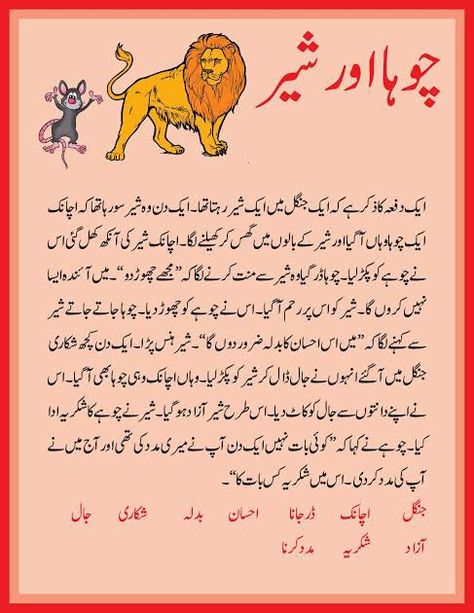 چوہا اور شیر
ایک دفعہ کا ذکر ہے کہ ایک جنگل میں ایک شیر رہتا تھا۔ ایک دن وہ شیر سو رہا تھا کہ اچانک
ایک چوہا وہاں آ گیا اور شیر کے بالوں میں گھس کر کھیلنے لگا۔ اچانک شیر کی آنکھ کھل گئی اس
نے چوہے کو پکڑ لیا۔ چوہا ڈر گیا وہ شیر سے منت کرنے لگا کہ ”مجھے چھوڑ دو“۔ میں آئندہ ایسا
نہیں کروں گا۔ شیر کو اس پر رحم آ گیا۔ اس نے چوہے کو چھوڑ دیا۔ چوہا جاتے جاتے شیر
سے کہنے لگا کہ ”میں اس احسان کا بدلہ ضرور دوں گا“۔ شیر ہنس پڑا۔ ایک دن کچھ شکاری
جنگل میں آ گئے انہوں نے جال ڈال کر شیر کو پکڑ لیا۔ وہاں اچانک وہی چوہا بھی آ گیا۔ اس
نے اپنے دانتوں سے جال کو کاٹ دیا۔ اس طرح شیر آزاد ہو گیا۔ شیر نے چوہے کا شکریہ ادا
کیا۔ چوہے نے کہا کہ ”کوئی بات نہیں ایک دن آپ نے میری مدد کی تھی اور آج میں نے
آپ کی مدد کر دی۔ اس میں شکریہ کس بات کا“۔
جنگل اچانک ڈر جانا احسان بدلہ شکاری جال
آزاد شکریہ مدد کرنا